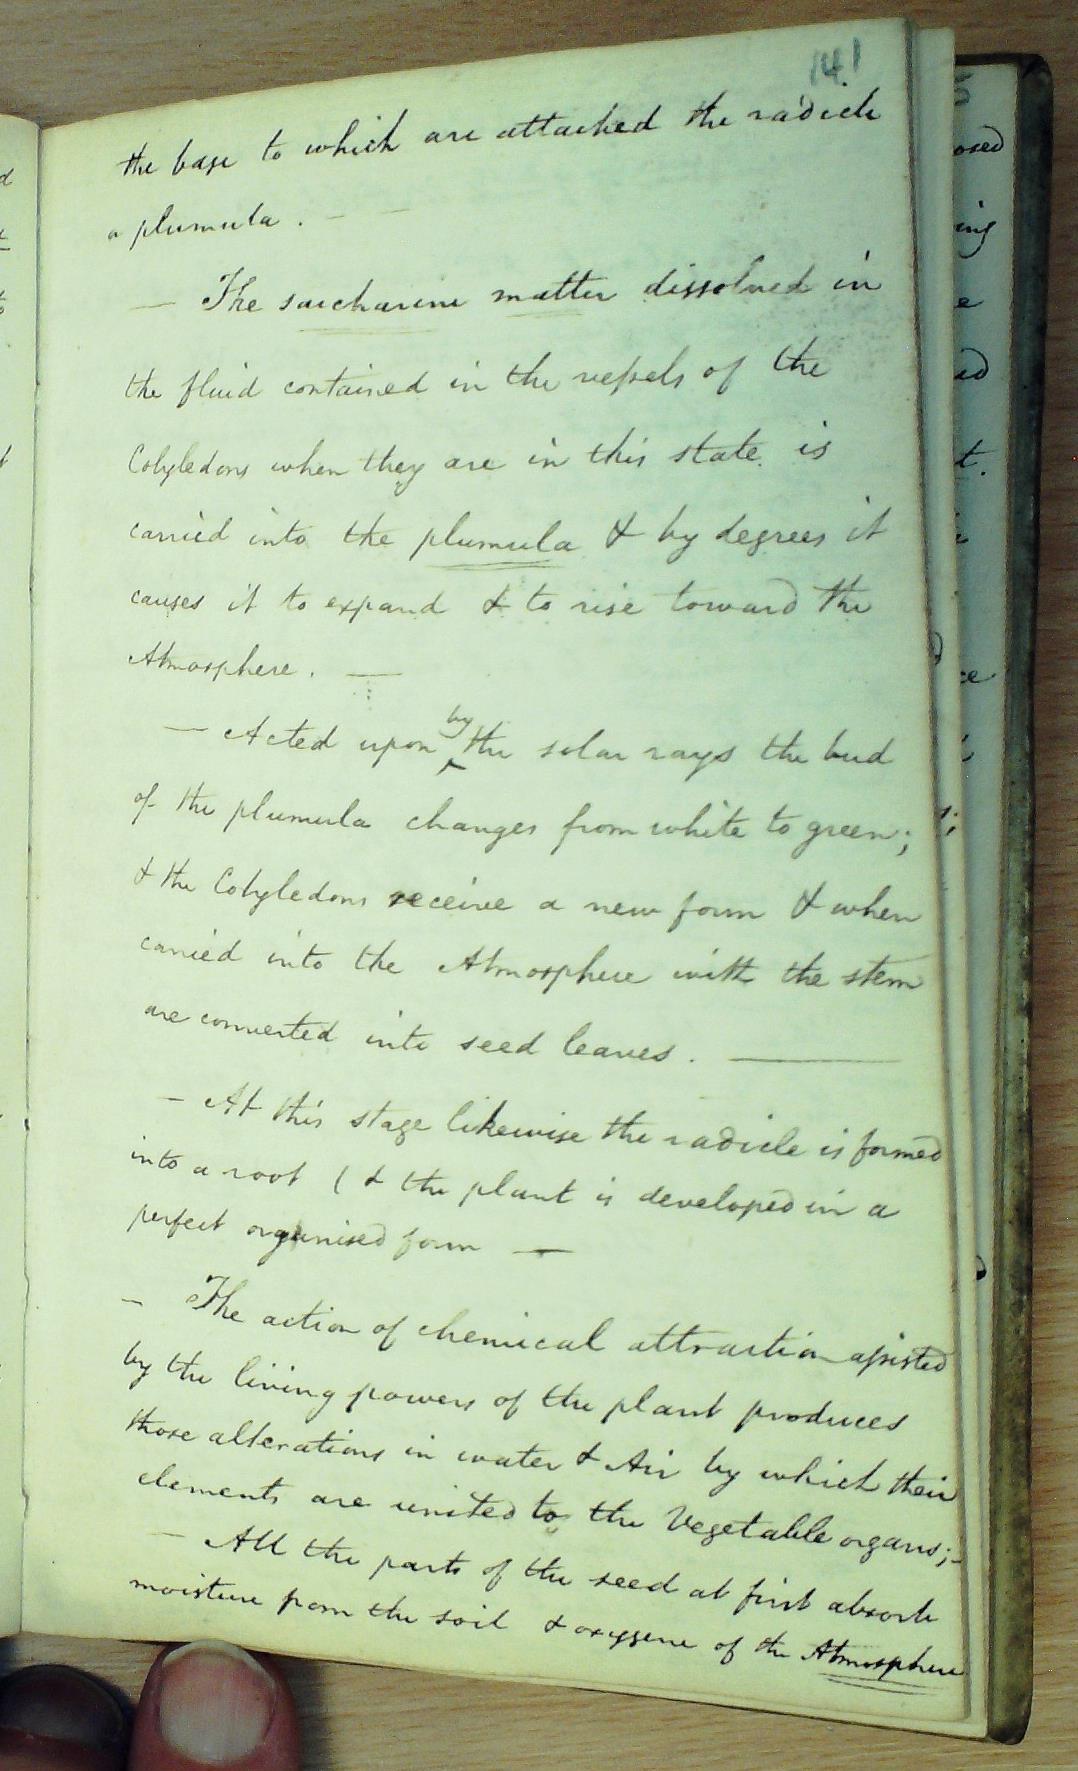 141
the base to which are attached the radicle
a plumula . — —
— The saccharine matter dissolved in
the fluid contained in the vessels of the
Cotyledons when they are in this state is
carried into the plumula & by degrees it
causes it to expand & to rise toward the
Atmosphere . —
— Acted upon by the solar rays the bud
of the plumula changes from white to green;
& the Cotyledons receive a new form & when
carried into the Atmosphere with the stem
are converted into seed leaves . —
— At this stage likewise the radicle is formed
into a root ( & the plant is developed in a
perfect organised form —
— The action of chemical attraction assisted
by the living powers of the plant produces
those alterations in water & Air by which their
elements are united to the Vegetable organs; —
— All the parts of the seed at first absorb
moisture from the soil & oxygene of the Atmosphere